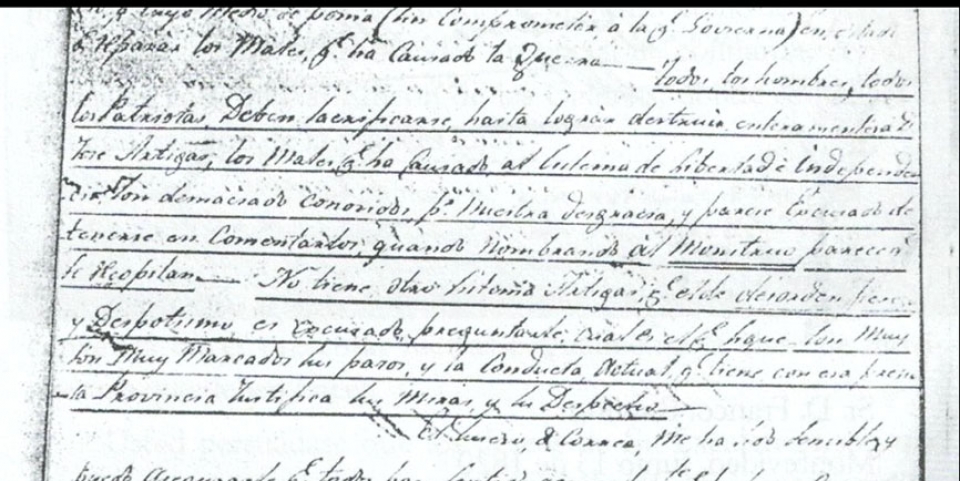 de poner (sin Comprometer à la q.e Govierna) en
de reparar los Males, q.e ha Causado la Guerra — todos los hombres, todos
los Patriotas, Deben sacrificarse, hasta lograr destruir enteramente à D.
Jose Artigas, los Males q.e ha Causado, al Sistema de libertad è independen
cia, Son demaciado conocidos p.a Nuestra desgracia, y parece Escusado de
tenerse en Comentarlos, quando nombrando al Monstruo parecen
se recopilan — No tiene otro Sistema Artigas, q.e el de desorden
y Despotismo, es escusado preguntarle cual es el q.e sigue. Son Muy
Son muy Marcados sus pasos, y la Conducta Actual q.e tiene con esa
la Provincia Justifica sus Miras, y su Despecho
de Correa, Me ha sido sensible, y
puedo asegurarle q.e todos